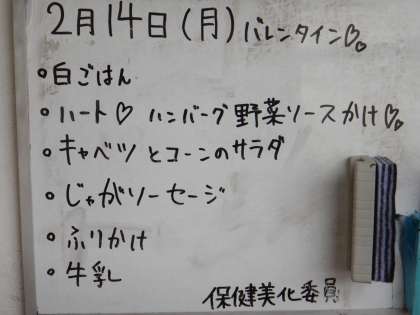 2月14日(月)バレンタイン♡。
。白ごはん
。ハート♡ ハンバーグ野菜ソースかけ♡。
。キャベツとコーンのサラダ
。じゃがソーセージ
。ふりかけ
。牛乳
保健美化委員